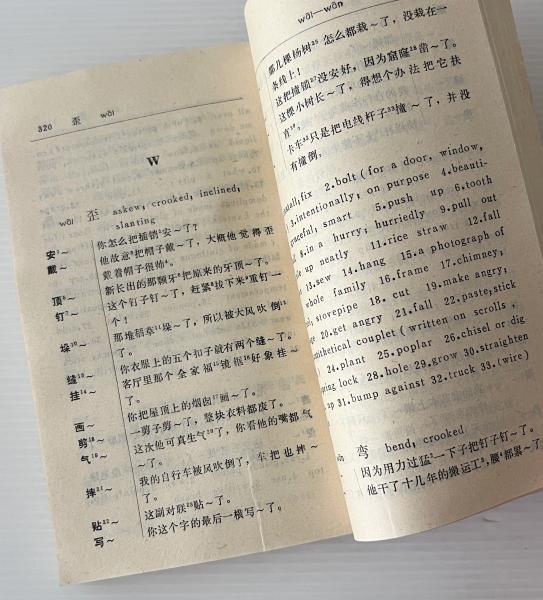 320 歪 wāi
W
wāi 歪 askew; crooked; inclined;
slanting
安¹~ 你怎么把插销²安~了？
戴~ 他故意³把帽子戴~了，大概他觉得歪
戴着帽子很帅⁴。
顶⁵~ 新长出的那颗牙⁶把原来的牙顶~了。
钉⁷~ 这个钉子钉~了，赶紧⁸拔下来⁹重钉一
个！
垛¹⁰~ 那堆稻草¹¹垛~了，所以被大风吹倒¹²
了。
缝¹³~ 你衣服上的五个扣子就有两个缝~了。
挂¹⁴~ 客厅里那个全家福¹⁵镜框¹⁶好象挂~
了。
画~ 你把屋顶上的烟囱¹⁷画~了。
剪¹⁸~ 一剪子剪~了，整块衣料都废了。
气¹⁹~ 这次他可真生气²⁰了，你看他的嘴都气
~了。
摔²¹~ 我的自行车被风吹倒了，车把也摔~
了。
贴²²~ 这副对联²³贴~了。
写~ 你这个字的最后一横写~了。
wāi—wān
那几棵杨树²⁵怎么都栽~了，没栽在一
条线上！
这把撞锁²⁷没安好，因为窟窿²⁸凿~了。
这棵小树长~了，得想个办法把它扶
直³⁰。
卡车³²只是把电线杆子³³撞~了，并没
有撞倒。
fix 2.bolt (for a door, window,
3.intentionally; on purpose 4.beauti-
graceful, smart 5.push up 6.tooth
8.in a hurry; hurriedly 9.pull out
up neatly 11.rice straw 12.fall
13.sew 14.hang 15.a photograph of
whole family 16.frame 17.chimney,
stovepipe 18. cut 19.make angry,
20.get angry 21.fall 22.paste; stick
antithetical couplet (written on scrolls,
24.plant 25.poplar 26.chisel or dig
spring lock 28.hole 29.grow 30.straighten
up 31.bump against 32.truck 33.(wire)
弯 bend; crooked
因为用力过猛¹一下子把钉子钉~了。
他干了十几年的搬运工²，腰³都累~了